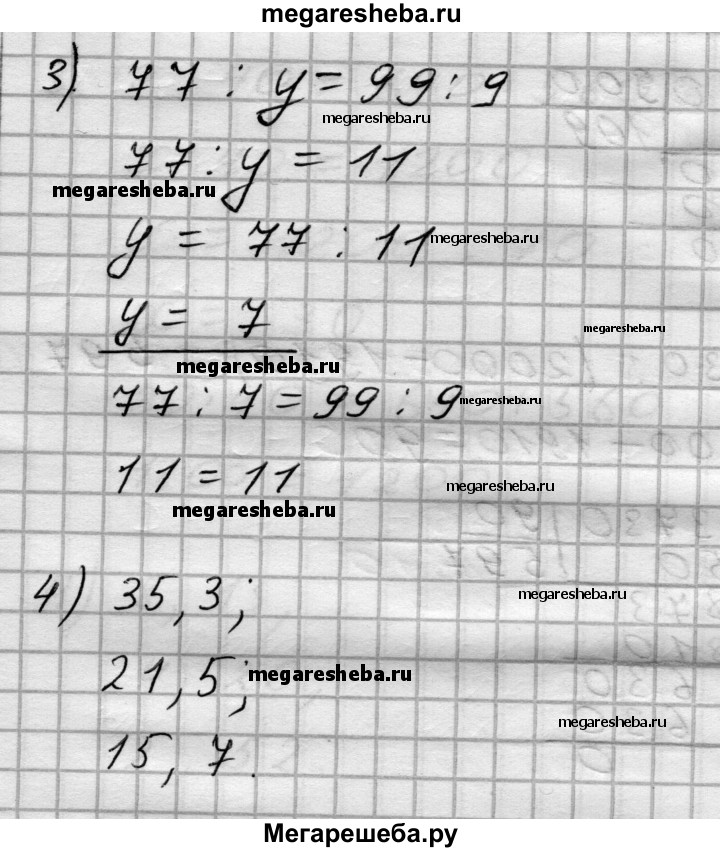 megaresheba.ru
3) 77 : y = 99 : 9
megaresheba.ru
77 : y = 11
megaresheba.ru
y = 77 : 11 megaresheba.ru
y = 7
megaresheba.ru
megaresheba.ru
77 : 7 = 99 : 9 megaresheba.ru
11 = 11
megaresheba.ru
megaresheba.ru
4) 35, 3;
megaresheba.ru
21, 5; megaresheba.ru
megaresheba.ru
15, 7.
Мегарешеба.ру